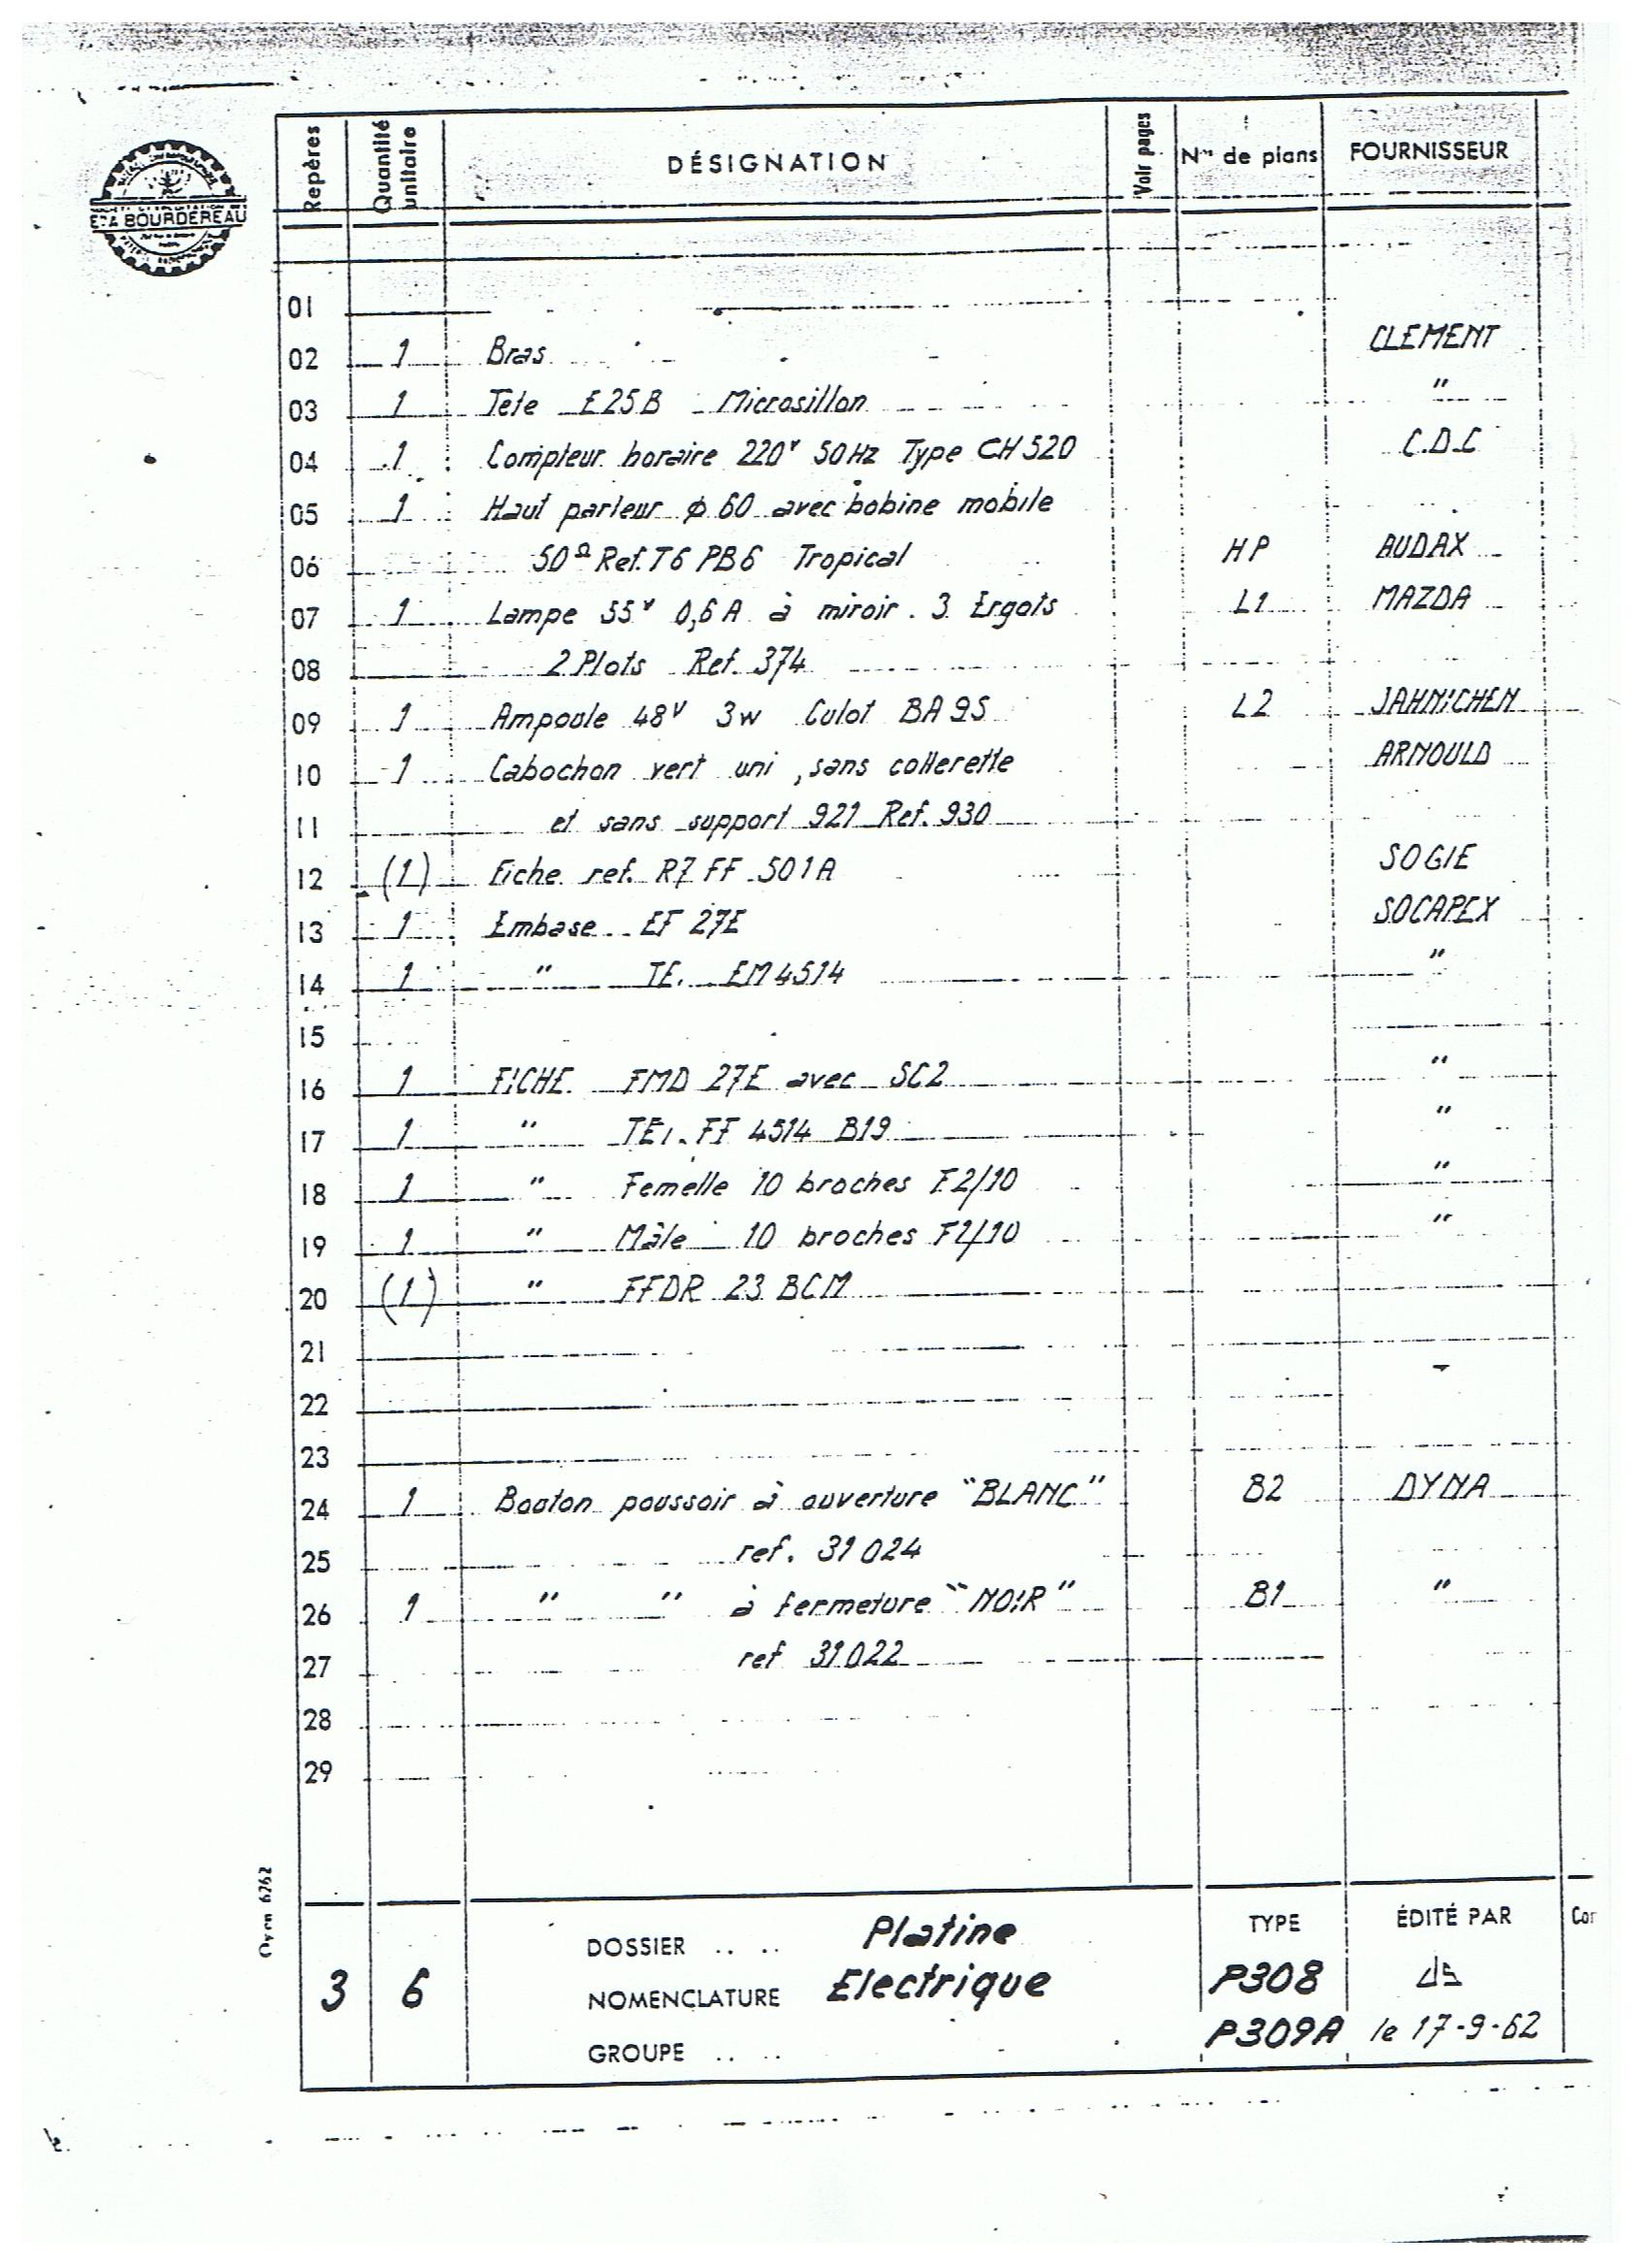 Repères Quantité unitaire DÉSIGNATION Voir pages Nos de plans FOURNISSEUR
Ets A BOURDEREAU
01
02 1 Bras CLEMENT
03 1 Tete E25B Microsillon "
04 1 Compteur horaire 220v 50Hz Type CH520 C.D.C
05 1 Haut parleur φ 60 avec bobine mobile
06 50Ω Ref. T6 PB6 Tropical HP AUDAX
07 1 Lampe 55v 0,6A à miroir. 3 Ergots L1 MAZDA
08 2 Plots Ref. 374
09 1 Ampoule 48V 3w Culot BA9S L2 JAHNICHEN
10 1 Cabochon vert uni, sans collerette ARNOULD
11 et sans support 921 Ref. 930
12 (1) Fiche ref. R7 FF 501A SOGIE
13 1 Embase EF 27E SOCAPEX
14 1 " TE. EM4514 "
15
16 1 FICHE FMD 27E avec SC2 "
17 1 " TE1. FF 4514 B19 "
18 1 " Femelle 10 broches F2/10 "
19 1 " Mâle 10 broches F1/10 "
20 (1) " FFDR 23 BCM
21
22
23
24 1 Bouton poussoir à ouverture "BLANC" B2 DYNA
25 ref. 31024
26 1 " " à fermeture "NOIR" B1 "
27 ref 31022
28
29
6262
3 6
DOSSIER .. .. Platine
NOMENCLATURE Electrique
GROUPE .. ..
TYPE
P308
P309A
ÉDITÉ PAR
le 17-9-62